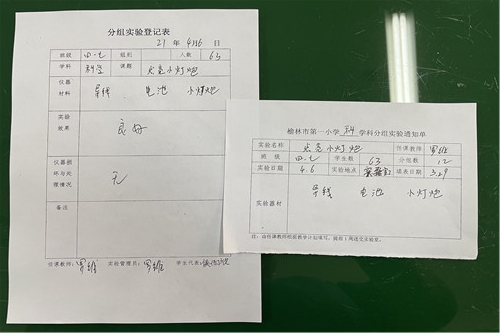 分组实验登记表
21 年 4月6日
班级 四.七 组别 人数 63
学科 科学 课题 点亮小灯泡
仪器
材料
导线 电池 小灯泡
实验
效果
良好
仪器损
坏与处
理情况
无
备注
任课教师: 罗维 实验管理员: 罗维 学生代表:
榆林市第一小学 科 学科分组实验通知单
实验名称 点亮小灯泡 任课教师 罗维
班级 四.七 学生数 63 分组数 12
实验日期 4.6 实验地点 填表日期 3.29
实验器材 导线 电池 小灯泡
注:由任课教师根据教学计划填写,提前1周送交实验室。